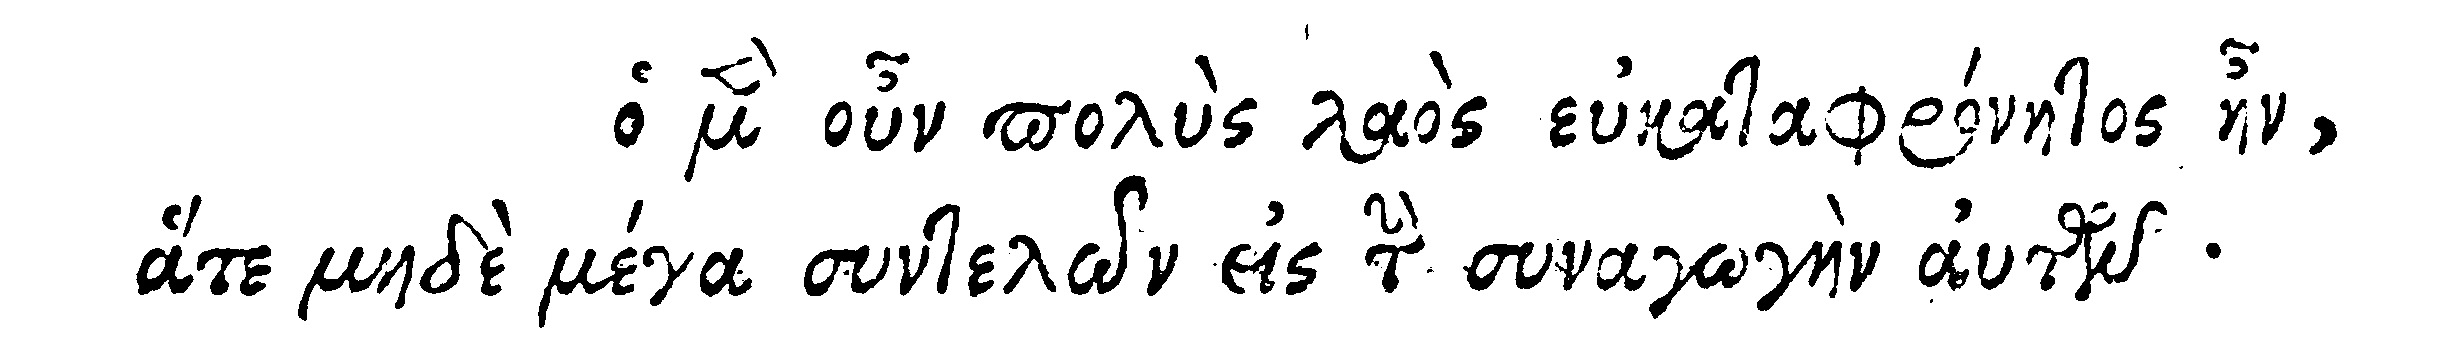 ὁ μὲν οὖν πολὺς λαὸς εὐκαταφρόνητος ἦν,
ἅτε μηδὲ μέγα συντελῶν εἰς τὴν συναγωγὴν ἀυτήν.